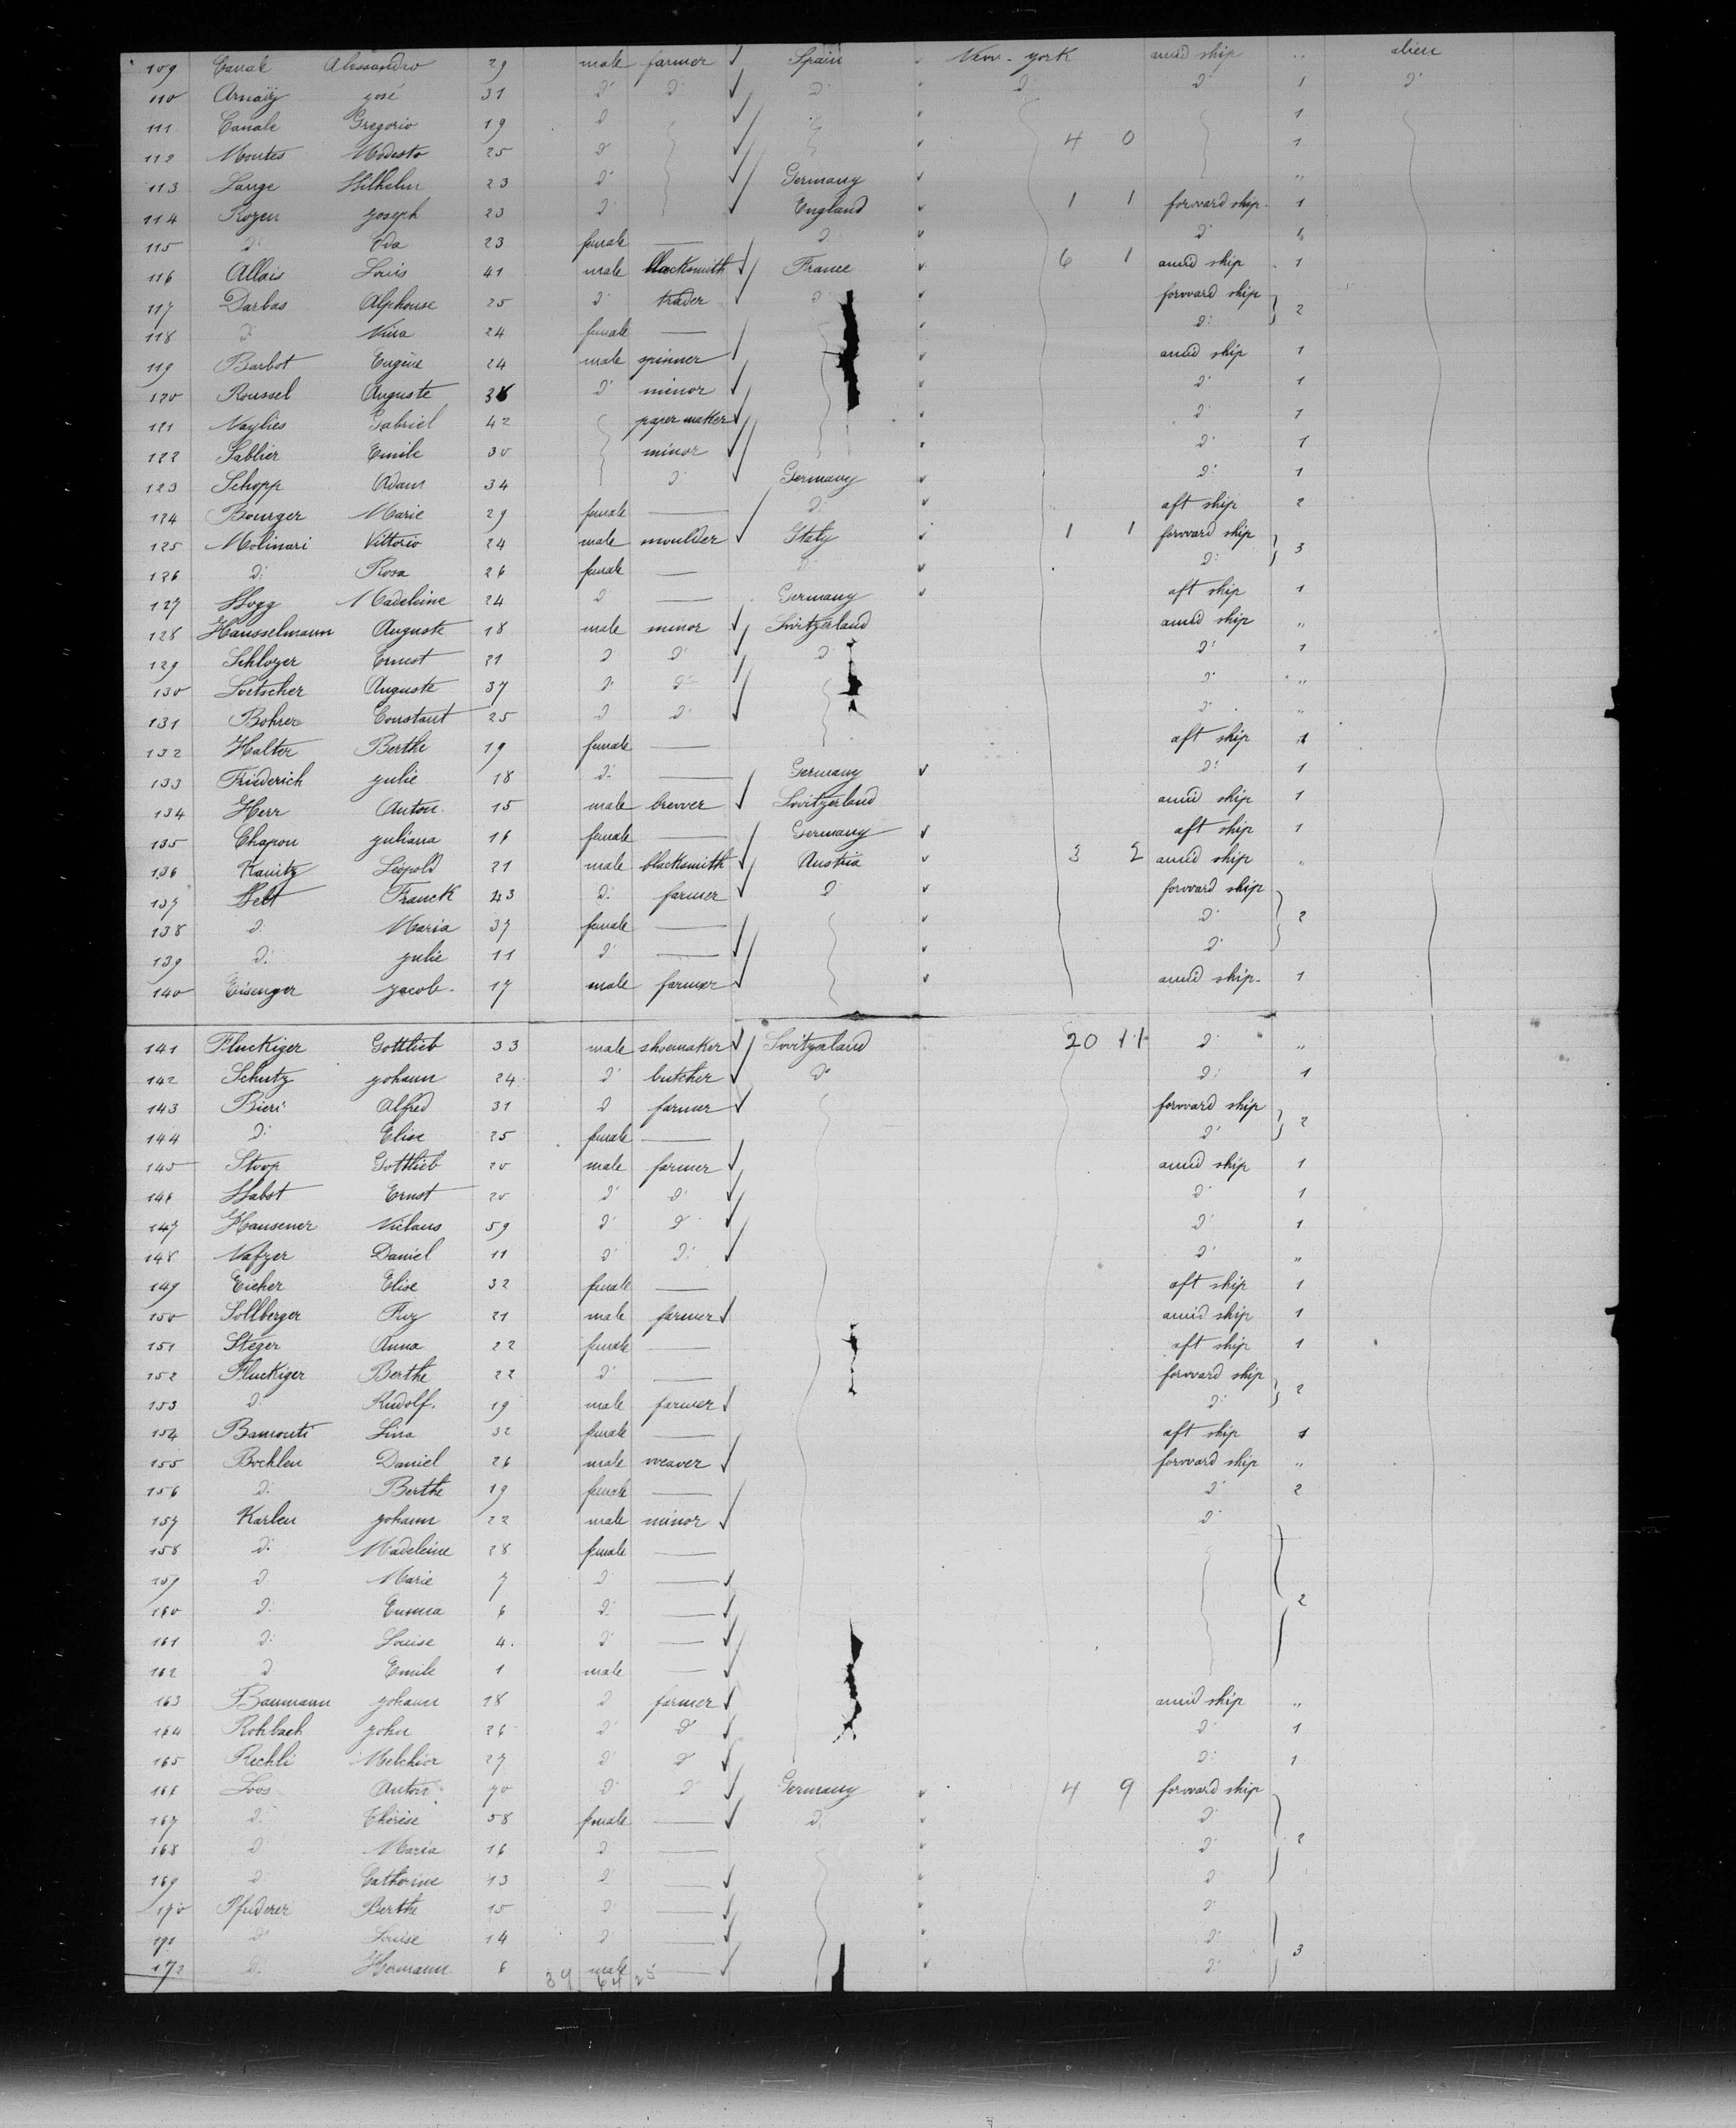 109 Canale Alessandro 29 male farmer Spain New-york amid ship " alien
110 Arnaiz José 31 d° d° d° d° d° 1 d°
111 Canale Gregorio 19 d 1
112 Montes Modesto 25 d 4 0 1
113 Lange Wilhelm 23 d° Germany "
114 Rozen Joseph 23 d° England 1 1 forward ship 1
115 d° Eda 23 female — d d° 1
116 Allais Louis 41 male blacksmith France 6 1 amid ship 1
117 Darbas Alphonse 25 d° trader d° forward ship
118 d° Nina 24 female — d° 2
119 Barbot Eugène 24 male spinner amid ship 1
120 Roussel Auguste d° minor d° 1
121 Naylies Gabriel 42 paper maker d° 1
122 Sablier Emile 30 minor d° 1
123 Schopp Adam 34 d° Germany d° 1
124 Bourger Marie 29 female — d° aft ship 2
125 Molinari Vittorio 24 male moulder Italy 1 1 forward ship
126 d° Rosa 26 female — d° d° 3
127 Hogg Madeleine 24 d — Germany aft ship 1
128 Hausselmann Auguste 18 male minor Switzerland amid ship "
129 Schlozer Ernest 21 d d° d d° 1
130 Loetscher Auguste 37 d° d° d° "
131 Bohrer Constant 25 d d° d° "
132 Halter Berthe 19 female — aft ship 1
133 Friederich Julie 18 d° — Germany d° 1
134 Herr Anton 15 male brewer Switzerland amid ship 1
135 Chapon Juliana 16 female — Germany aft ship 1
136 Kanitz Léopold 21 male blacksmith Austria 3 2 amid ship "
137 Helt Franck 43 d° farmer d° forward ship
138 d° Maria 37 female — d° 2
139 d° Julie 11 d° — d°
140 Eisenger Jacob 17 male farmer amid ship 1
141 Fluckiger Gottlieb 33 male shoemaker Switzerland 20 11 d° "
142 Schutz Johann 24 d° butcher d° d° 1
143 Bieri Alfred 31 d farmer forward ship
144 d° Elise 25 female — d° 2
145 Stoop Gottlieb 20 male farmer amid ship 1
146 Habst Ernst 20 d° d° d° 1
147 Hausener Niclaus 59 d° d° d° 1
148 Nafzer Daniel 11 d° d° d° "
149 Eicher Elise 32 female — aft ship 1
150 Sollberger 21 male farmer amid ship 1
151 Steger Anna 22 female — aft ship 1
152 Fluckiger Berthe 22 d° — forward ship
153 d° Rudolf 19 male farmer d° 2
154 Bamonti Lina 32 female — aft ship 1
155 Bochlen Daniel 26 male weaver forward ship "
156 d° Berthe 19 female — d° 2
157 Karlen Johann 22 male minor d°
158 d° Madeleine 28 female —
159 d° Marie 7 d° —
160 d° Emma 6 d° — 2
161 d° Louise 4 d° —
162 d Emile 1 male —
163 Baumann Johann 18 d farmer amid ship "
164 Rohbach John 26 d° d° d° 1
165 Rechli Melchior 27 d° d° d° 1
166 Loos Anton 70 d° d° Germany 4 9 forward ship
167 d° Thérèse 58 female — d° d°
168 d° Maria 16 d° — d° 2
169 d° Catherine 13 d° — d°
170 Pfuderer Berthe 15 d° — d°
171 d° Louise 14 d° — d°
172 d° Hermann 6 male — d° 3
39 64 25